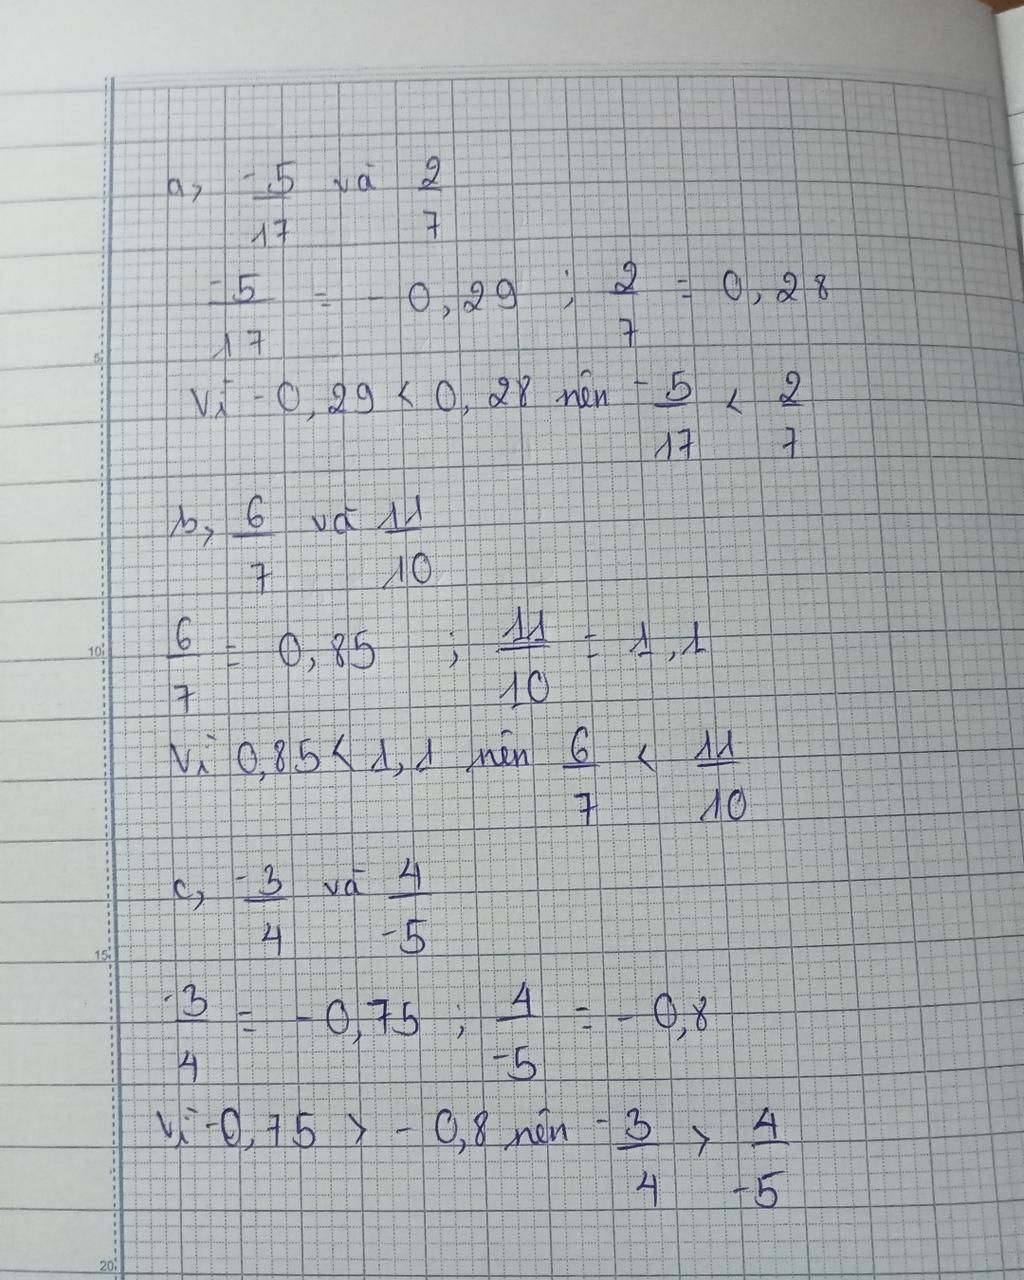 a, -5/17 và 2/7
-5/17 = -0,29 ; 2/7 = 0,28
Vì -0,29 < 0,28 nên -5/17 < 2/7
b, 6/7 và 11/10
6/7 = 0,85 ; 11/10 = 1,1
Vì 0,85 < 1,1 nên 6/7 < 11/10
c, -3/4 và 4/-5
-3/4 = -0,75 ; 4/-5 = -0,8
Vì -0,75 > -0,8 nên -3/4 > 4/-5
5
10
15
20